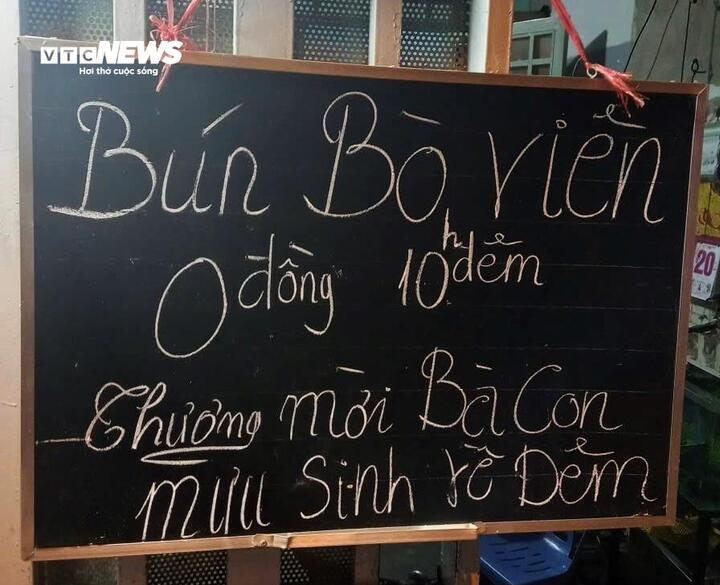 VTC NEWS
Hơi thở cuộc sống
Bún Bò Viên
0 đồng 10h đêm
Thương mời Bà Con
mưu Sinh về Đêm
20